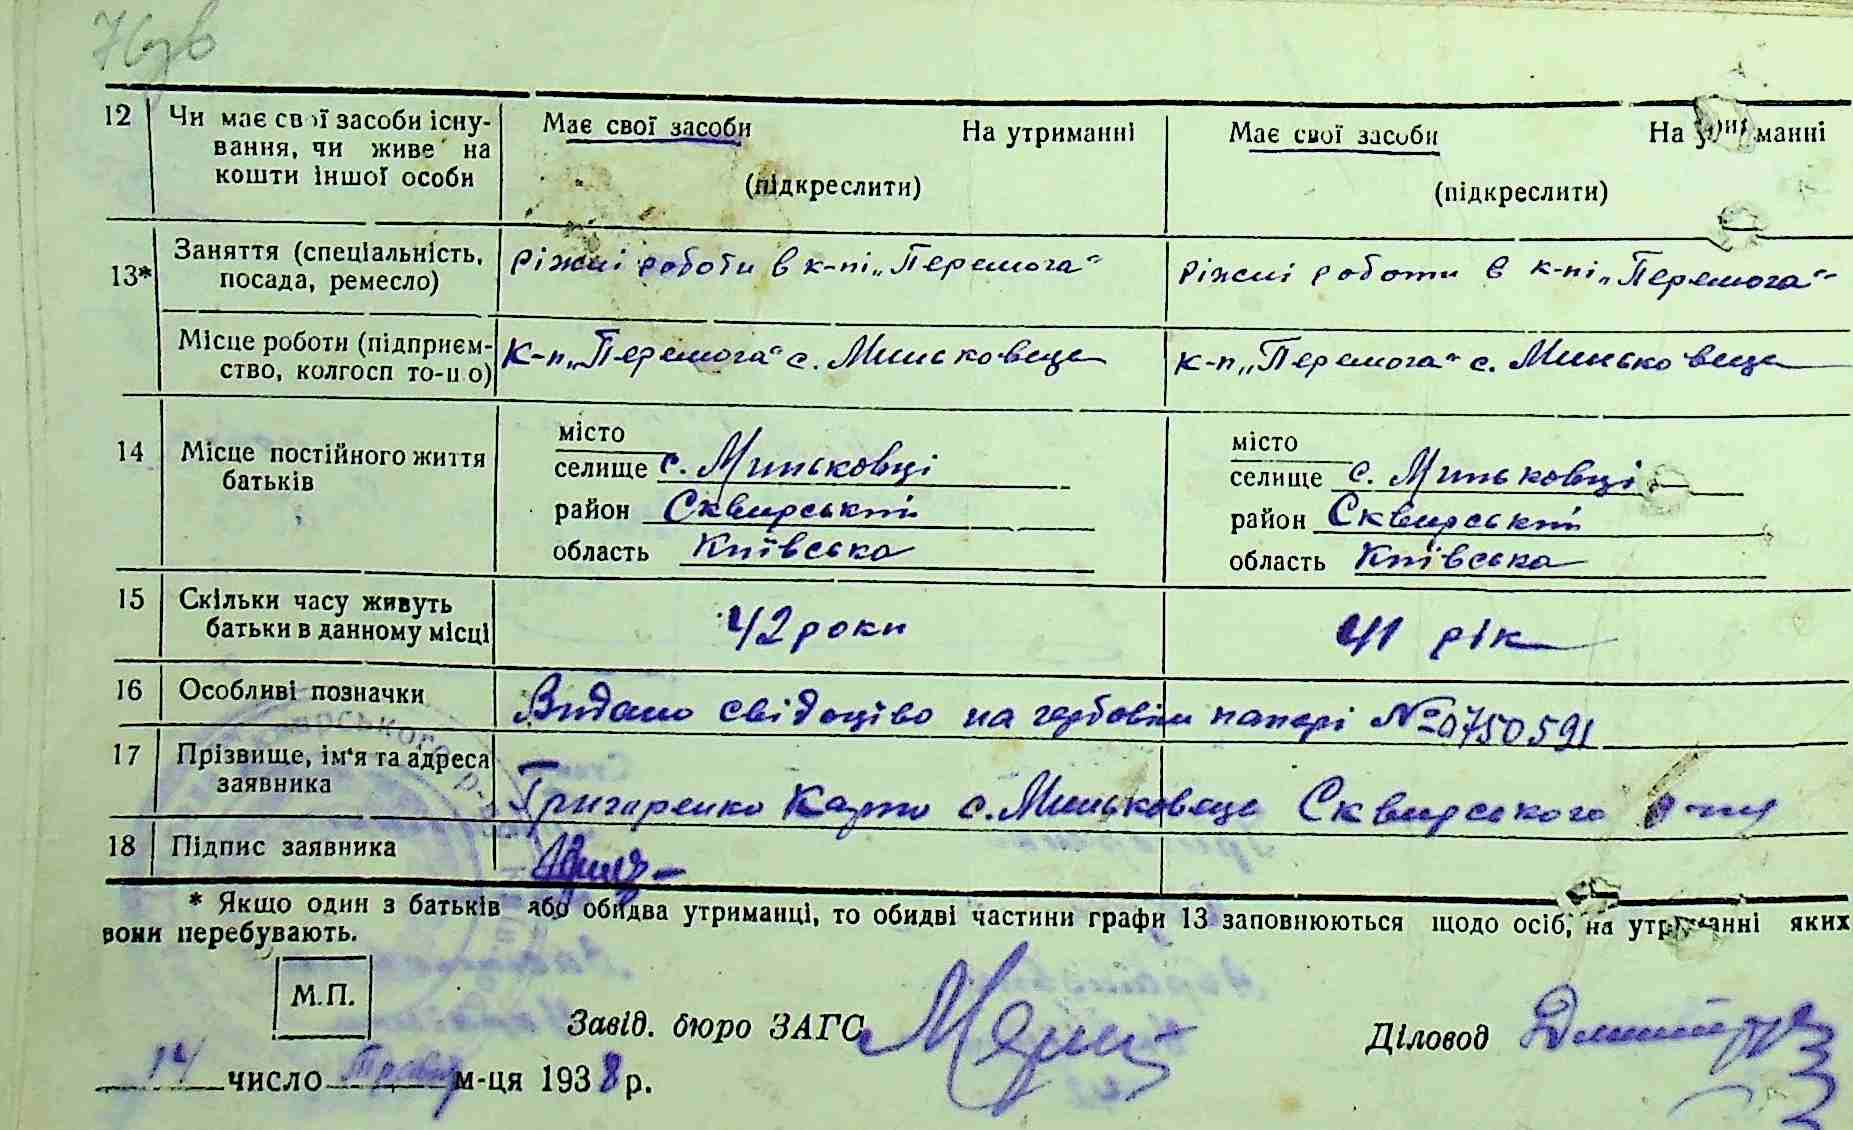 76зв
12 Чи має свої засоби існування, чи живе на кошти іншої особи
Має свої засоби На утриманні
(підкреслити)
Має свої засоби На утриманні
(підкреслити)
13* Заняття (спеціальність, посада, ремесло)
ріжні роботи в к-пі „Перемога“
ріжні роботи в к-пі „Перемога“
Місце роботи (підприємство, колгосп то-що)
К-п „Перемога“ с. Миньковеце
К-п „Перемога“ с. Миньковеце
14 Місце постійного життя батьків
місто
селище с. Миньковці
район Сквирський
область Київська
місто
селище с. Миньковці
район Сквирський
область Київська
15 Скільки часу живуть батьки в данному місці
42 роки
41 рік
16 Особливі позначки
Видано свідоцтво на гербовім папері № 0750591
17 Прізвище, ім'я та адреса заявника
Григоренко с. Миньковеце Сквирського р-ну
18 Підпис заявника
* Якщо один з батьків або обидва утриманці, то обидві частини графи 13 заповнюються щодо осіб, на утриманні яких
вони перебувають.
М.П.
Завід. бюро ЗАГС
Діловод
14 число Травня м-ця 1938 р.